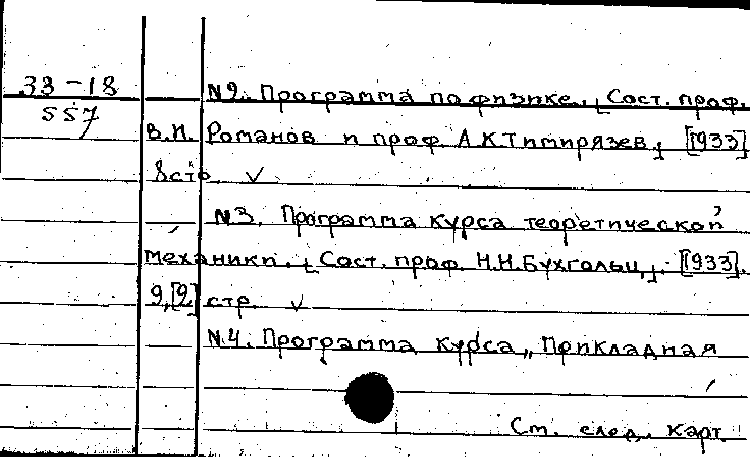 33-18
557
N2. Программа по физике. [Сост. проф.
В.П. Романов и проф. А.К Тимирязев] [1933]
8 стр
N3. Программа курса теоретической
механики. [Сост. проф. Н.Н. Бухгольц]. [1933].
9,[2] стр.
N4. Программа курса „Прикладная
См. след. карт.